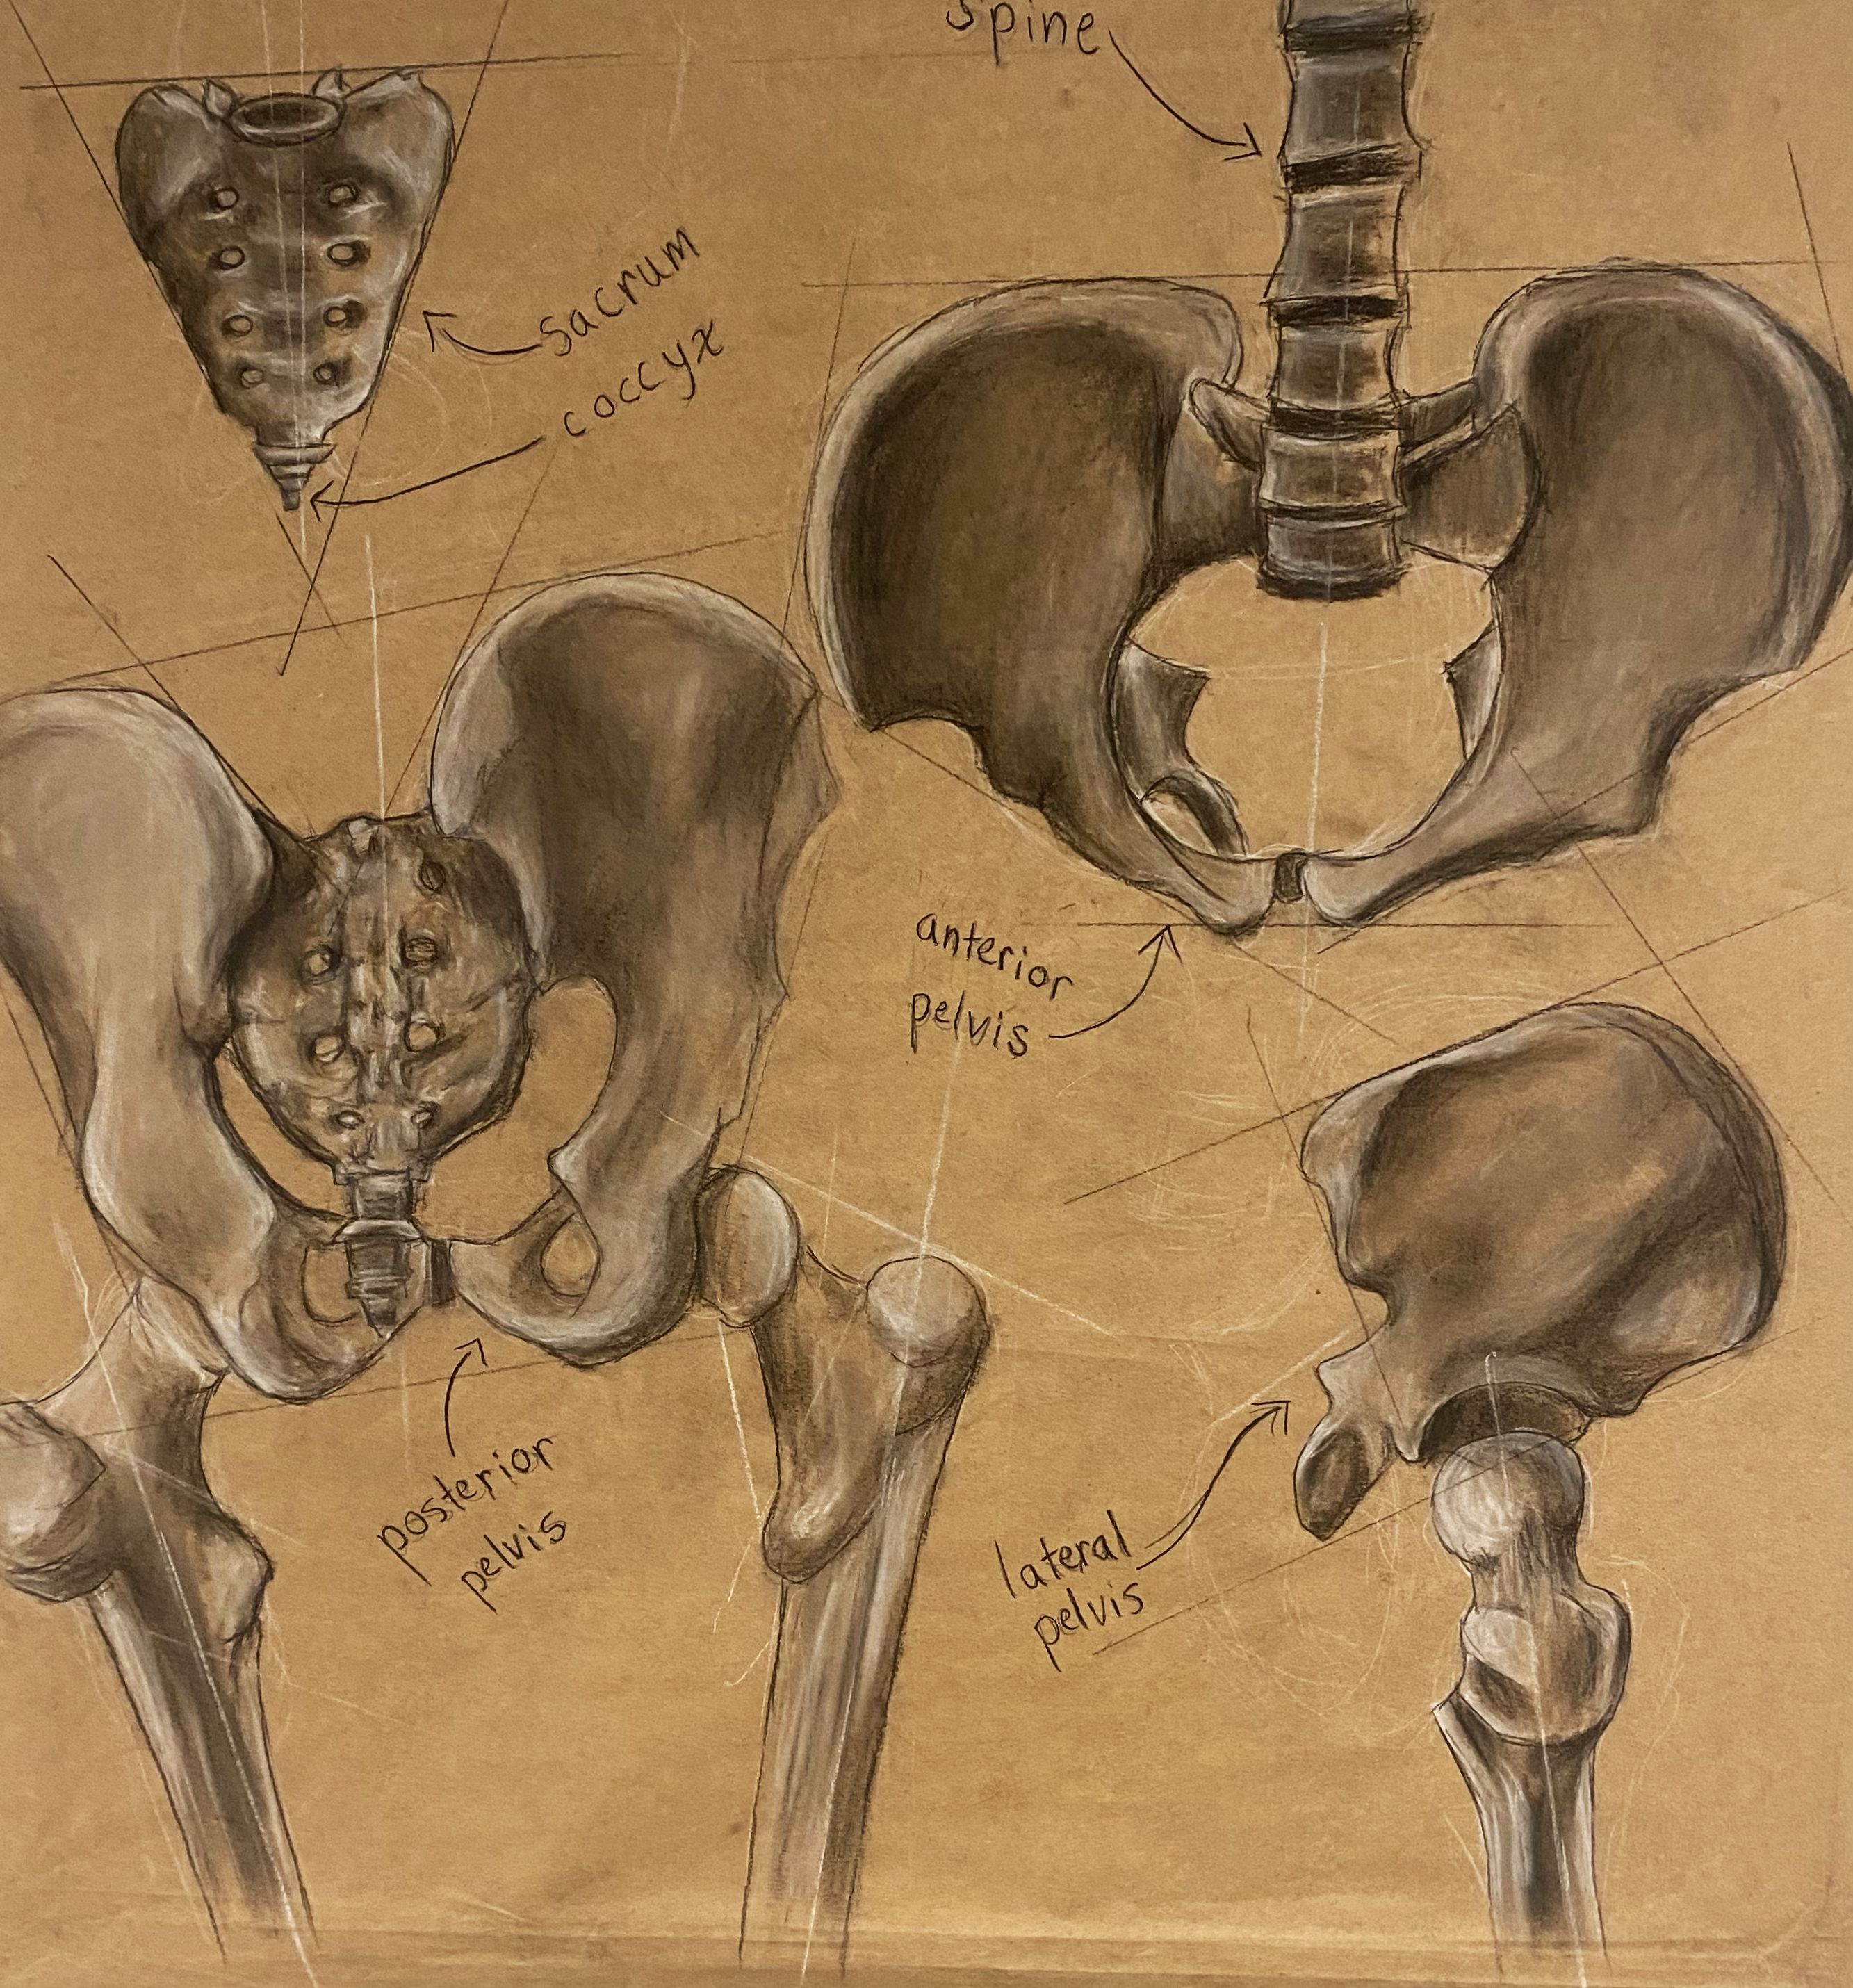 spine
sacrum
coccyx
anterior
pelvis
posterior
pelvis
lateral
pelvis